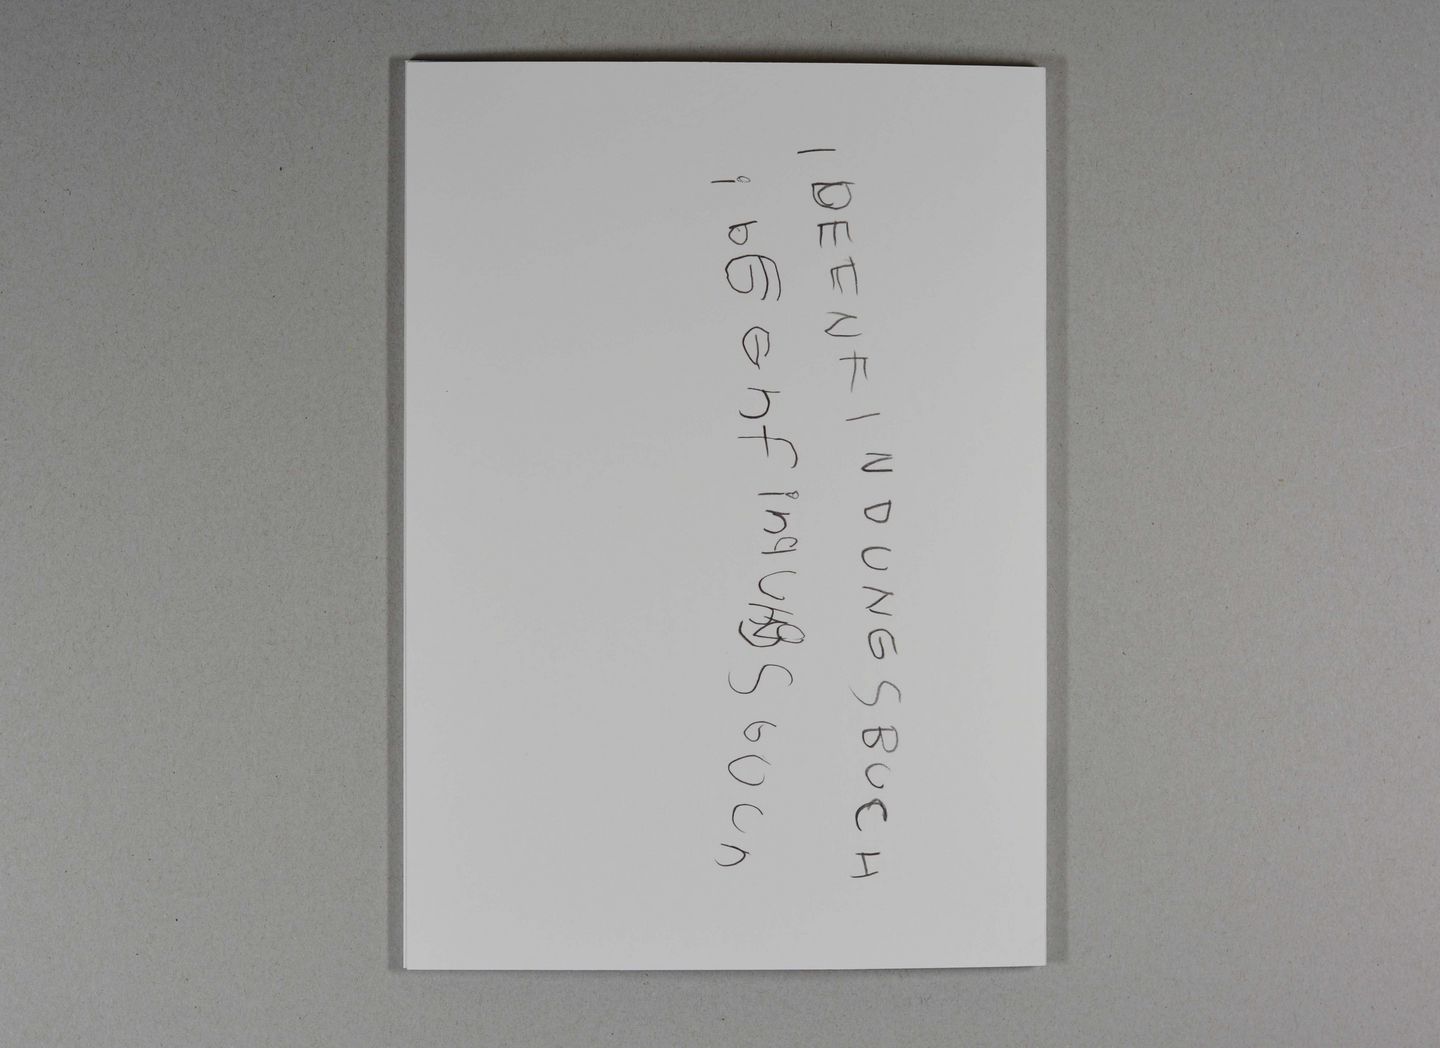 IDEENFINDUNGSBUCH
ideenfindungsbuch